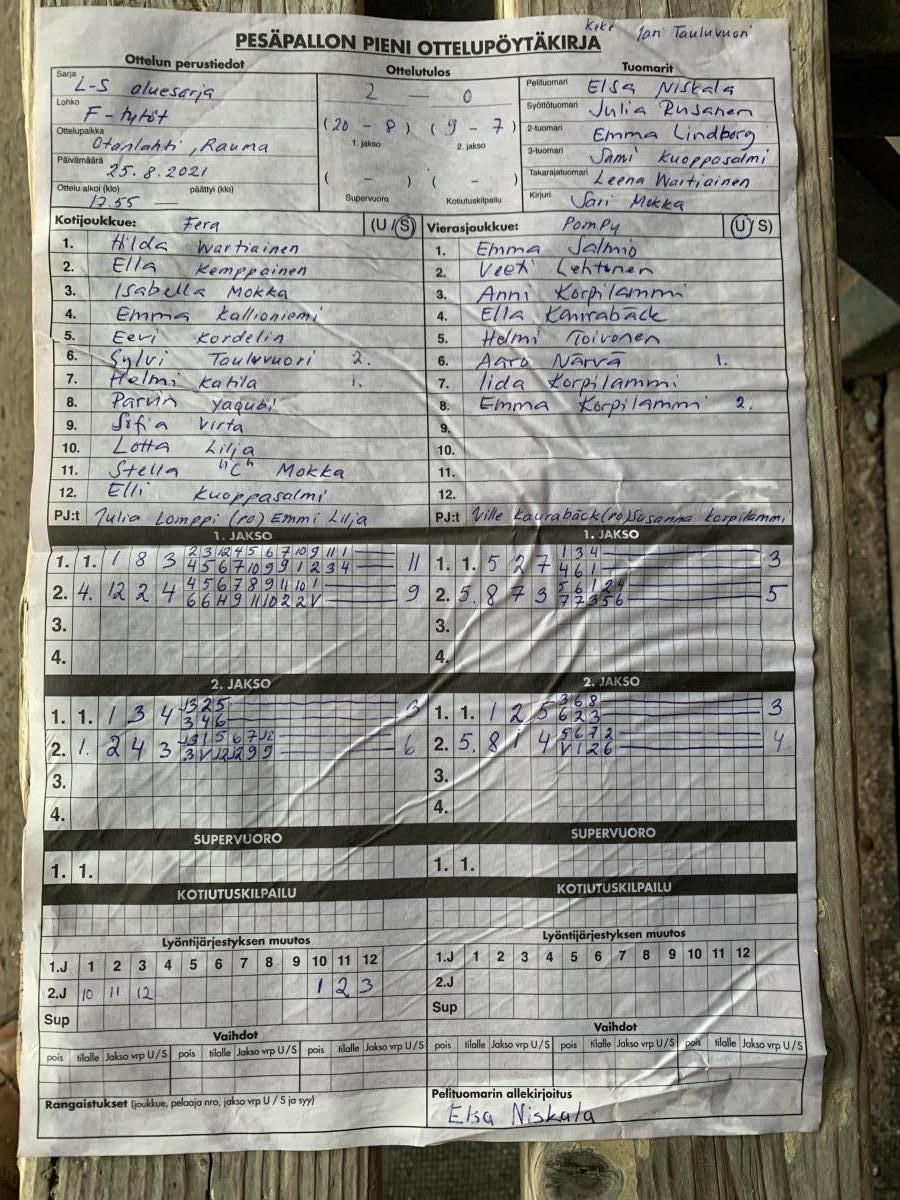 Jari Tauluvuori
PESÄPALLON PIENI OTTELUPÖYTÄKIRJA
Ottelun perustiedot
Sarja L-S aluesarja
Lohko F-tytöt
Ottelupaikka Otanlahti, Rauma
Päivämäärä 25.8.2021
Ottelu alkoi (klo) päättyi (klo)
17.55 —
Ottelutulos
2 — 0
(20 - 8) (9 - 7)
1. jakso 2. jakso
( - ) ( - )
Supervuoro Kotiutuskilpailu
Tuomarit
Pelituomari Elsa Niskala
Syöttötuomari Julia Rusanen
2-tuomari Emma Lindborg
3-tuomari Sami Kuoppasalmi
Takarajatuomari Leena Wartiainen
Kirjuri Sari Mokka
Kotijoukkue: Fera (U/S)
1. Hilda Wartiainen
2. Ella Kemppainen
3. Isabella Mokka
4. Emma Kallioniemi
5. Eevi Kordelin
6. Sylvi Tauluvuori 2.
7. Helmi Katila 1.
8. Parvin Yaqubi
9. Sifia Virta
10. Lotta Lilja
11. Stella "C" Mokka
12. Elli Kuoppasalmi
PJ:t Julia Lomppi (po) Emmi Lilja
Vierasjoukkue: PomPy (U/S)
1. Emma Salmio
2. Veeti Lehtonen
3. Anni Korpilammi
4. Ella Kaurabäck
5. Helmi Toivonen
6. Aaro Närvä 1.
7. Iida Korpilammi
8. Emma Korpilammi 2.
9.
10.
11.
12.
PJ:t Ville Kaurabäck (po) Susanna Korpilammi
1. JAKSO
1. 1. 1 8 3 2 3 12 4 5 6 7 10 9 11 1 11
4 5 6 7 10 9 9 1 2 3 4
2. 4. 12 2 4 4 5 6 7 8 9 11 10 1 9
6 6 H 9 11 10 2 2 V
3.
4.
1. JAKSO
1. 1. 5 2 7 1 3 4 3
4 6 1
2. 5. 8 7 3 5 6 1 2 4 5
7 7 3 5 6
3.
4.
2. JAKSO
1. 1. 1 3 4 13 2 5 3
3 4 6
2. 1. 2 4 3 5 6 7 12 6
3 V 12 12 9 9
3.
4.
2. JAKSO
1. 1. 1 2 5 3 6 8 3
6 2 3
2. 5. 8 1 4 5 6 7 2 4
V 1 2 6
3.
4.
SUPERVUORO
1. 1.
SUPERVUORO
1. 1.
KOTIUTUSKILPAILU
KOTIUTUSKILPAILU
Lyöntijärjestyksen muutos
1.J 1 2 3 4 5 6 7 8 9 10 11 12
2.J 10 11 12 1 2 3
Sup
Lyöntijärjestyksen muutos
1.J 1 2 3 4 5 6 7 8 9 10 11 12
2.J
Sup
Vaihdot
pois tilalle Jakso vrp U/S pois tilalle Jakso vrp U/S pois tilalle Jakso vrp U/S
Vaihdot
pois tilalle Jakso vrp U/S pois tilalle Jakso vrp U/S pois tilalle Jakso vrp U/S
Rangaistukset (joukkue, pelaaja nro, jakso vrp U / S ja syy)
Pelituomarin allekirjoitus
Elsa Niskala